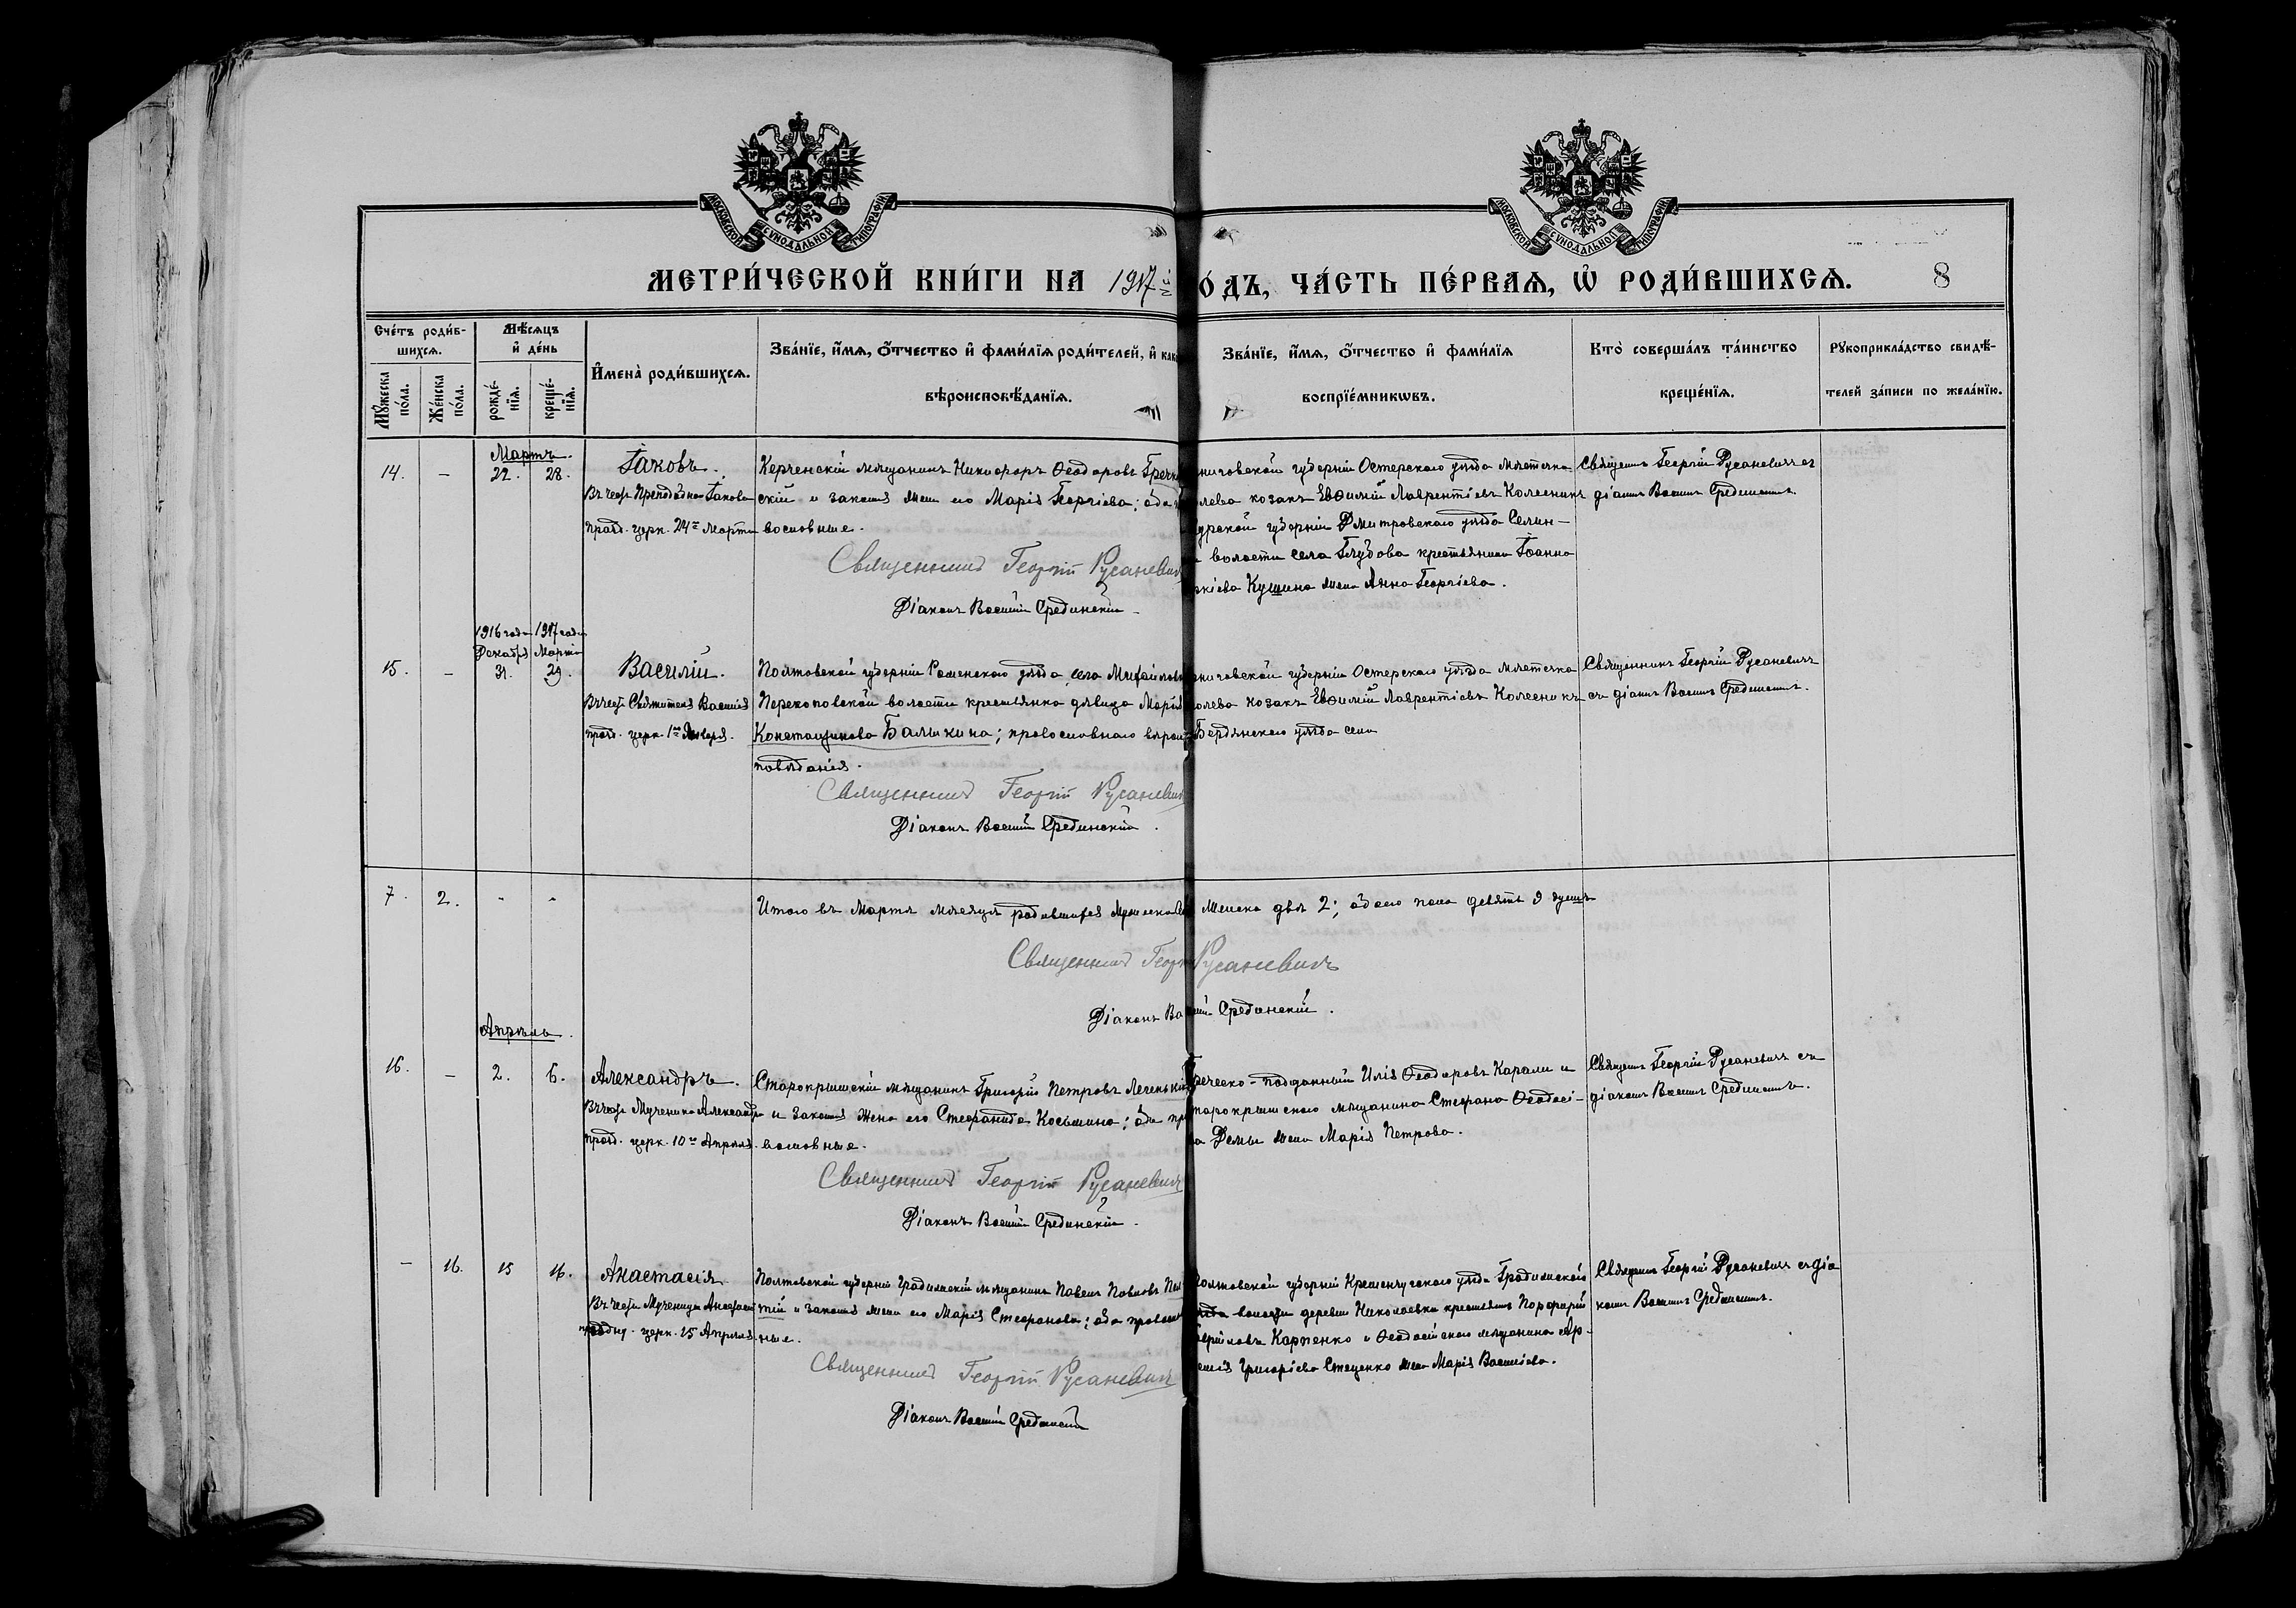 МОСКОВСКОЙ СѴНОДАЛЬНОЙ ТИПОГРАФІИ
МОСКОВСКОЙ СѴНОДАЛЬНОЙ ТИПОГРАФІИ
МЕТРИ́ЧЕСКОЙ КНИ́ГИ НА 1917
О́ДЪ, ЧА́СТЬ ПЕ́РВАѦ, Ѡ҆ РОДИ́ВШИХСѦ.
8
Сче́тъ роди́в-
шихсѧ.
Мꙋ́жеска
по́ла.
Же́нска
по́ла.
Мѣ́сѧцъ
и҆ де́нь
рожде́-
нїѧ.
креще́-
нїѧ.
И҆мена̀ роди́вшихсѧ.
Зва́нїе, и҆́мѧ, ѻ҆́тчество и҆ фами́лїѧ роди́телей, и҆
вѣроисповѣ́данїѧ.
Зва́нїе, и҆́мѧ, ѻ҆́тчество и҆ фами́лїѧ
воспрїе́мникѡвъ.
Кто̀ соверша́лъ та́инство
креще́нїѧ.
Рꙋкоприкла́дство свидѣ́-
телей за́писи по жела́нїю.
Мартъ.
14. – 22. 28.
Іаковъ.
Въ честь Преподобнаго Іакова
празд. церк. 24го Марта
Керченскій мѣщанинъ Никифоръ Ѳеодоровъ
скій и законная жена его Марія Георгіева; оба
вославные.
Священникъ Георгій Русаневичъ
Діаконъ Василій Срединскій
губерніи Остерскаго уѣзда мѣстечка
козакъ Евѳимій Лаврентіевъ Колесникъ
губерніи Дмитровскаго уѣзда
волости села Глубова крестьянина Іоанна
жена Анна Георгіева.
Священникъ Георгій Русаневичъ съ
діакономъ Василіемъ Срединскимъ.
1916 года 1917 года
Декабря Марта
15. – 31. 29.
Василій.
Въ честь Святителя Василія
празд. церк. 1го Января.
Полтовской губерніи Роменскаго уѣзда, села
Перекоповской волости крестьянка дѣвица Марія
Константинова Балыкина; православнаго вѣроис
повѣданія.
Священникъ Георгій Русаневичъ
Діаконъ Василій Срединскій.
губерніи Остерскаго уѣзда мѣстечка
козакъ Евѳимій Лаврентіевъ Колесникъ
Бердянскаго уѣзда села
Священникъ Георгій Русаневичъ
съ діакономъ Василіемъ Срединскимъ.
7. 2. - -
Итого въ Мартѣ мѣсяцѣ родившихся мужеска
женска двѣ 2; обоего пола девять 9 душъ
Священникъ Георгій Русаневичъ
Діаконъ Василій Срединскій.
Апрѣль.
16. – 2. 6.
Александръ.
Въ честь Мученика Александра
празд. церк. 10го Апрѣля.
Старокрымскій мѣщанинъ Григорій Петровъ
и законная жена его Стефанида Косьмина; оба пра
вославные.
Священникъ Георгій Русаневичъ
Діаконъ Василій Срединскій.
Греческо-подданный Илія Ѳеодоровъ Карали и
старокрымскаго мѣщанина Стефана Ѳеодосі-
ва Демы жена Марія Петрова.
Священникъ Георгій Русаневичъ съ
діакономъ Василіемъ Срединскимъ.
– 16. 15 16.
Анастасія.
Въ честь Мученицы Анастасіи
празд. церк. 15 Апрѣля.
Полтовской губерніи Градижскій мѣщанинъ Павелъ Павловъ
тій и законная жена его Марія Стефанова; оба правосл
ные.
Священникъ Георгій Русаневичъ
Діаконъ Василій Срединскій
Полтовской губерніи Кременчугскаго уѣзда Градижской
волости деревни Николаевки крестьянинъ Порфирій
Карпенко и Ѳеодосійскаго мѣщанина Ар-
Григоріева Стеценко жена Марія Василіева.
Священникъ Георгій Русаневичъ съ діа
кономъ Василіемъ Срединскимъ.